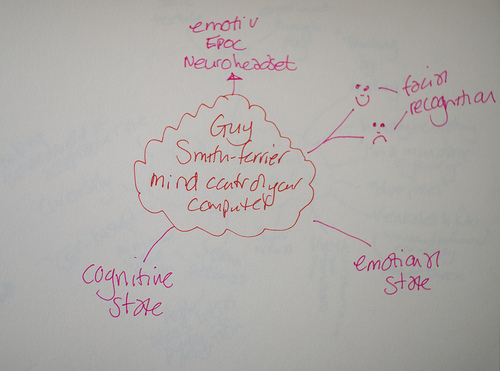 emotiv
EPOC
Neuroheadset
facial
recognition
Guy
Smith-ferrier
mind control your
computer
cognitive
state
emotional
state